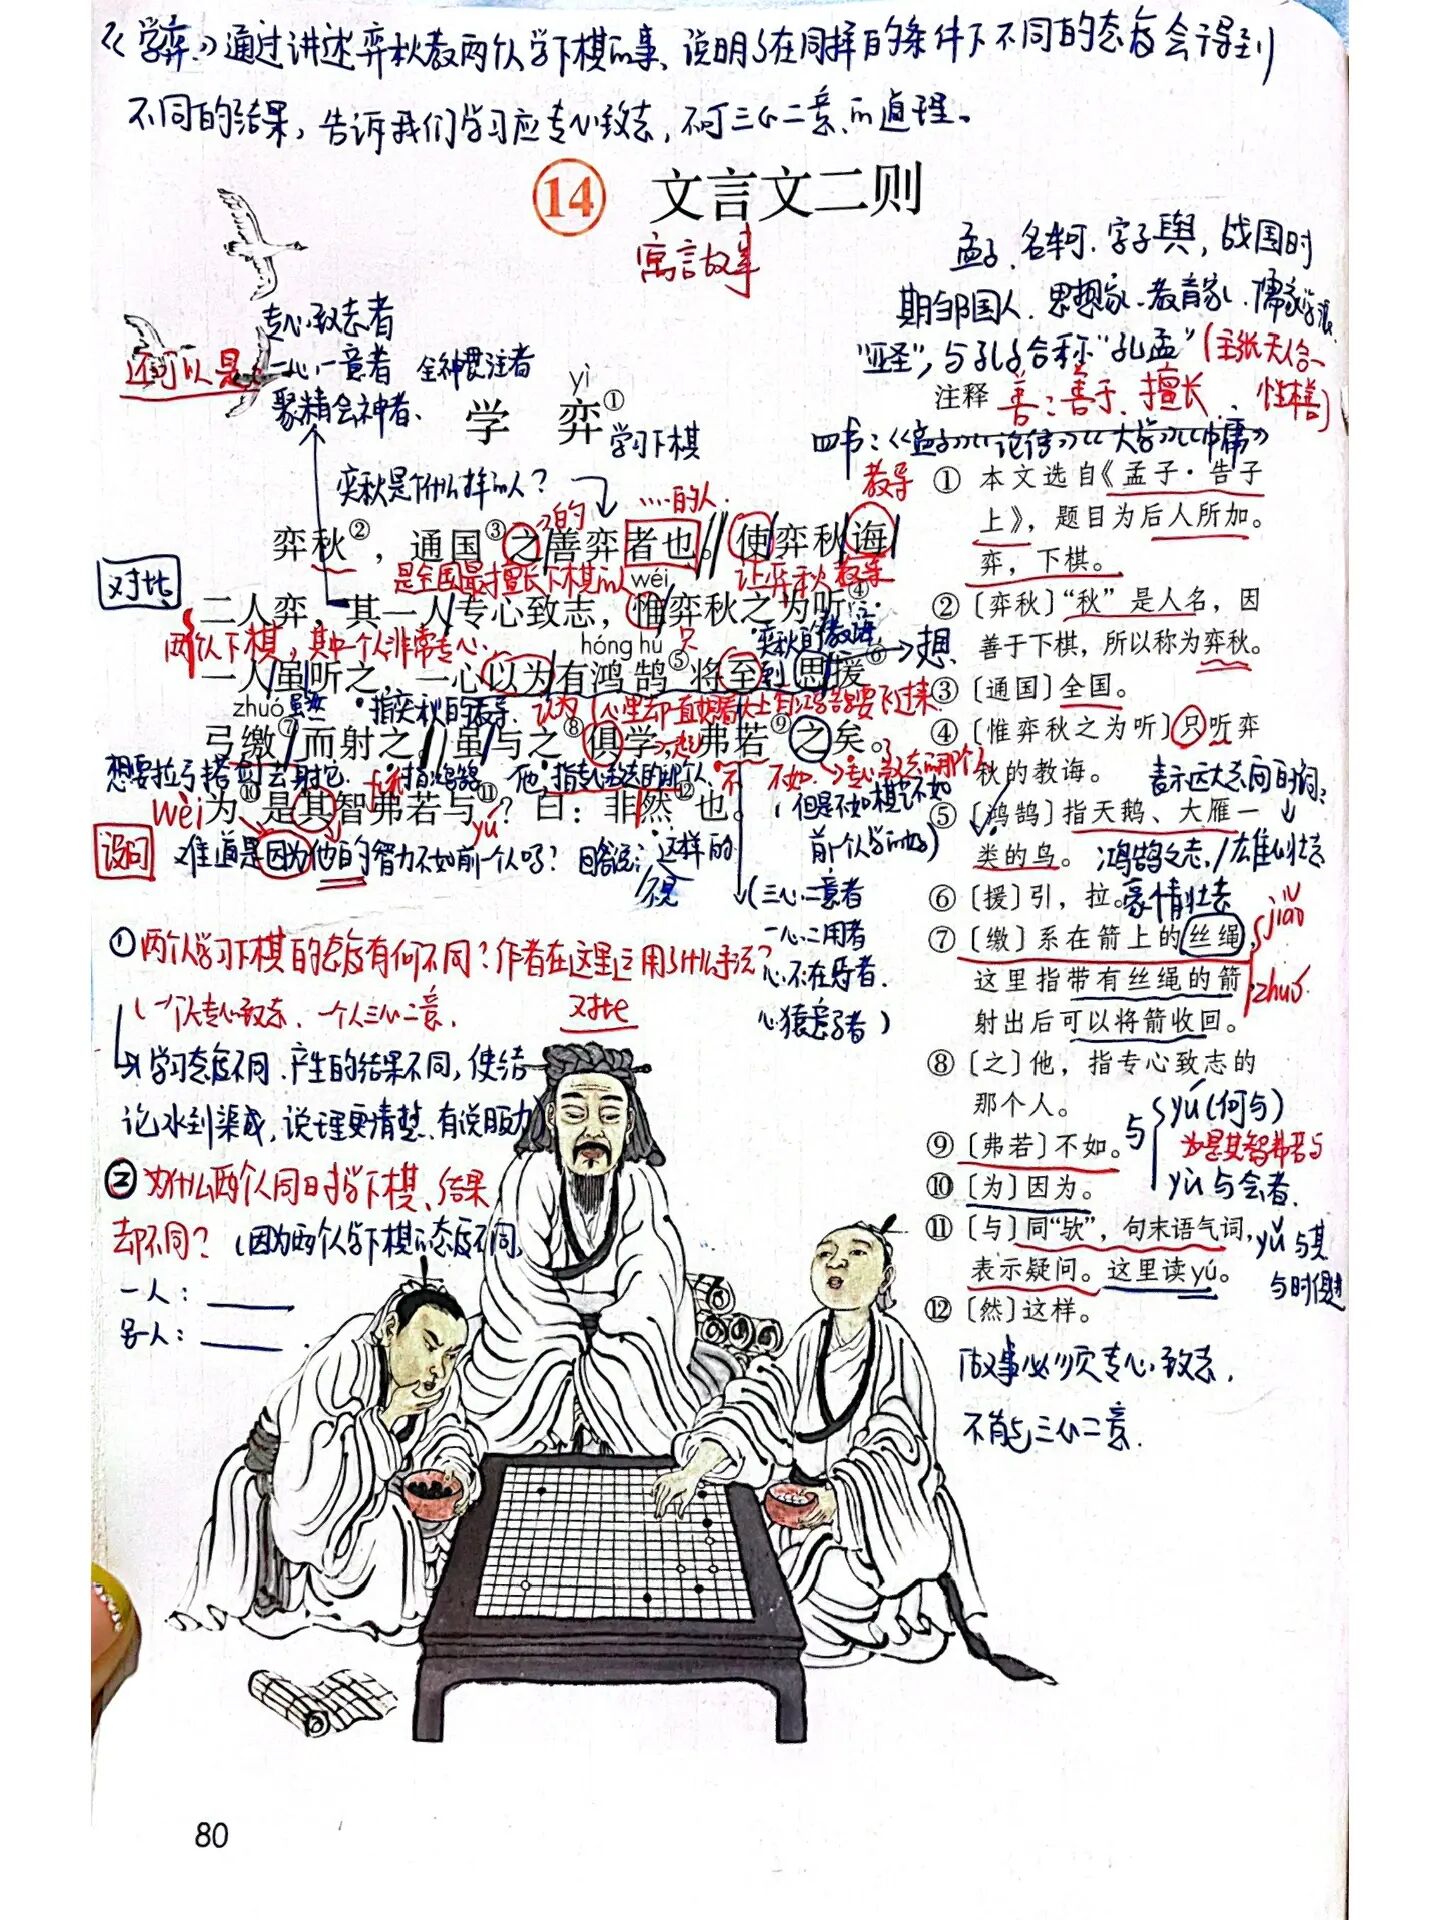 《学弈》通过讲述弈秋教两个人学下棋的事、说明了在同样的条件下不同的态度会得到
不同的结果，告诉我们学习应专心致志，不可三心二意的道理。
14 文言文二则
寓言故事
孟子、名轲、字子舆，战国时
期邹国人、思想家、教育家、儒家学派
“亚圣”，与孔子合称“孔孟”（主张天人合一
性善）
还可以是：
专心致志者
一心一意者 全神贯注者
聚精会神者、
yì
学 弈①
学习下棋
注释 善：善于、擅长
四书：《孟子》《论语》《大学》《中庸》
弈秋是个什么样的人？
……的人
教导
的
弈秋②，通国③之善弈者也。使弈秋诲
是全国最擅长下棋的人
wéi
让弈秋教导
对比
二人弈，其一人专心致志，惟弈秋之为听④；
两个人下棋，其中一个人非常专心、
hóng hú
只
弈秋的教诲
想
一人虽听之，一心以为有鸿鹄⑤将至，思援⑥
zhuó
虽然
指弈秋的教导、
认为（心里却一直想着天上有鸿鹄要飞过来
弓缴⑦而射之。虽与之⑧俱学，弗若⑨之矣。
一起
想要拉弓搭箭去射它
指鸿鹄
他，指专心致志的那个人
不
不如
专心致志的那个人
wèi
为⑩是其智弗若与⑪？曰：非然⑫也。
yú
设问
难道是因为他的智力不如前一个人吗？回答说：这样的
不是
（但是不如棋艺不如
前一个人学的好）
（三心二意者
一心二用者
心不在焉者、
心猿意马者）
① 本文选自《孟子·告子
上》，题目为后人所加。
弈，下棋。
②〔弈秋〕“秋”是人名，因
善于下棋，所以称为弈秋。
③〔通国〕全国。
④〔惟弈秋之为听〕只听弈
秋的教诲。
表示远大志向的词：
⑤〔鸿鹄〕指天鹅、大雁一
类的鸟。
鸿鹄之志，雄心壮志
⑥〔援〕引，拉。
豪情壮志
⑦〔缴〕系在箭上的丝绳，
这里指带有丝绳的箭，
射出后可以将箭收回。
jiǎo
zhuó
⑧〔之〕他，指专心致志的
那个人。
⑨〔弗若〕不如。
⑩〔为〕因为。
⑪〔与〕同“欤”，句末语气词，
表示疑问。这里读yú。
⑫〔然〕这样。
与
yú（何与）
为是其智弗若与
yù 与会者、
yǔ 与其
与时俱进
做事必须专心致志，
不能三心二意、
①两个人学习下棋的态度有何不同？作者在这里运用了什么手法？
（一个人专心致志、一个人三心二意、
对比
学习态度不同、产生的结果不同，使结
论水到渠成，说理更清楚、有说服力）
②为什么两个人同时学下棋、结果
却不同？（因为两个人学下棋的态度不同，
一人：
另一人：
80